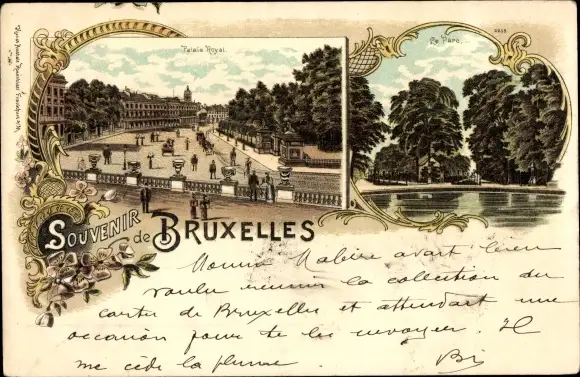 Palais Royal.
Le Parc.
SOUVENIR de BRUXELLES
avait bien
voulu réunir la collection des
cartes de Bruxelles et attendait une
occasion pour te les envoyer. Il
me cède la plume.